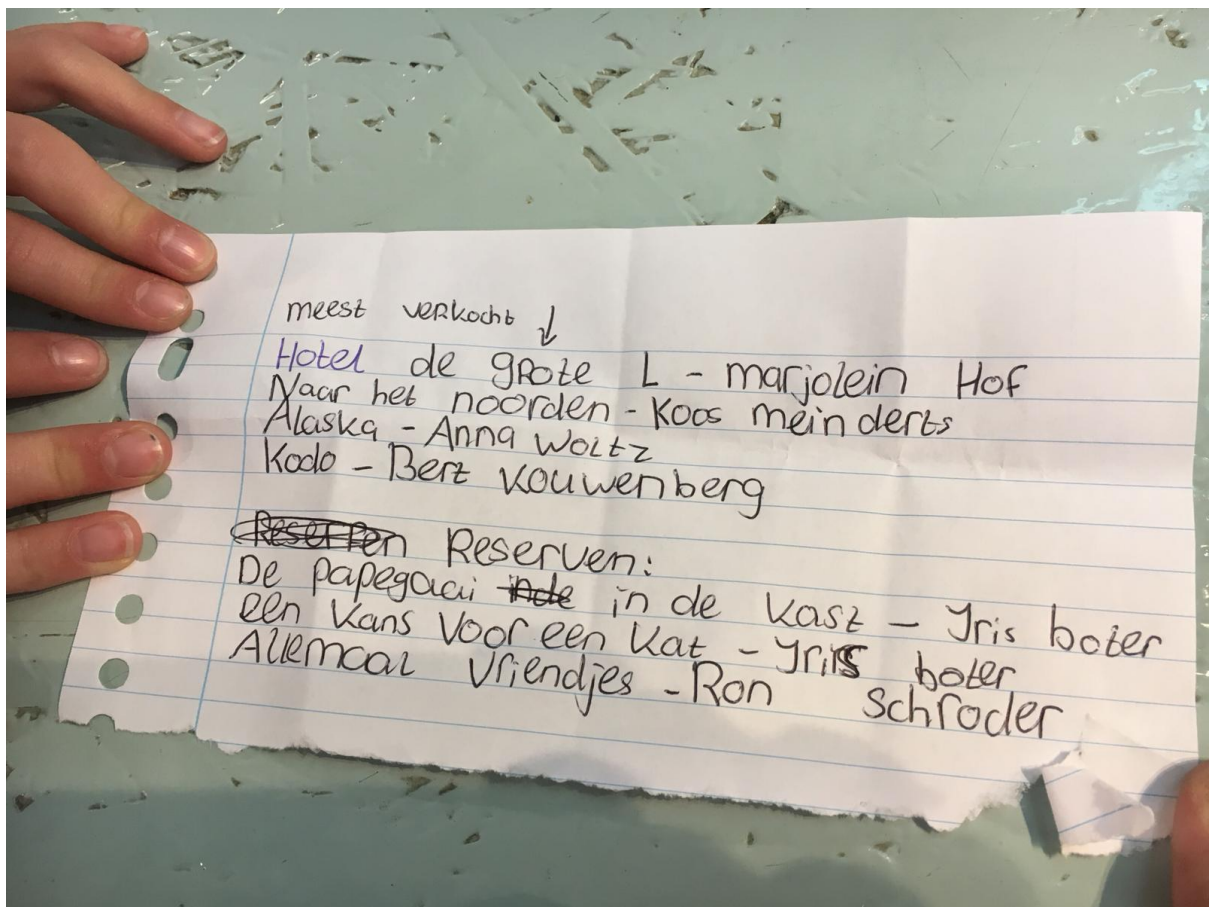 meest verkocht ↓
Hotel de grote L - marjolein Hof
Naar het noorden - Koos meinderts
Alaska - Anna Woltz
Kodo - Bert Kouwenberg
Reserven:
De papegaai in de kast - Iris boter
een kans voor een kat - Iris boter
Allemaal vriendjes - Ron Schroder